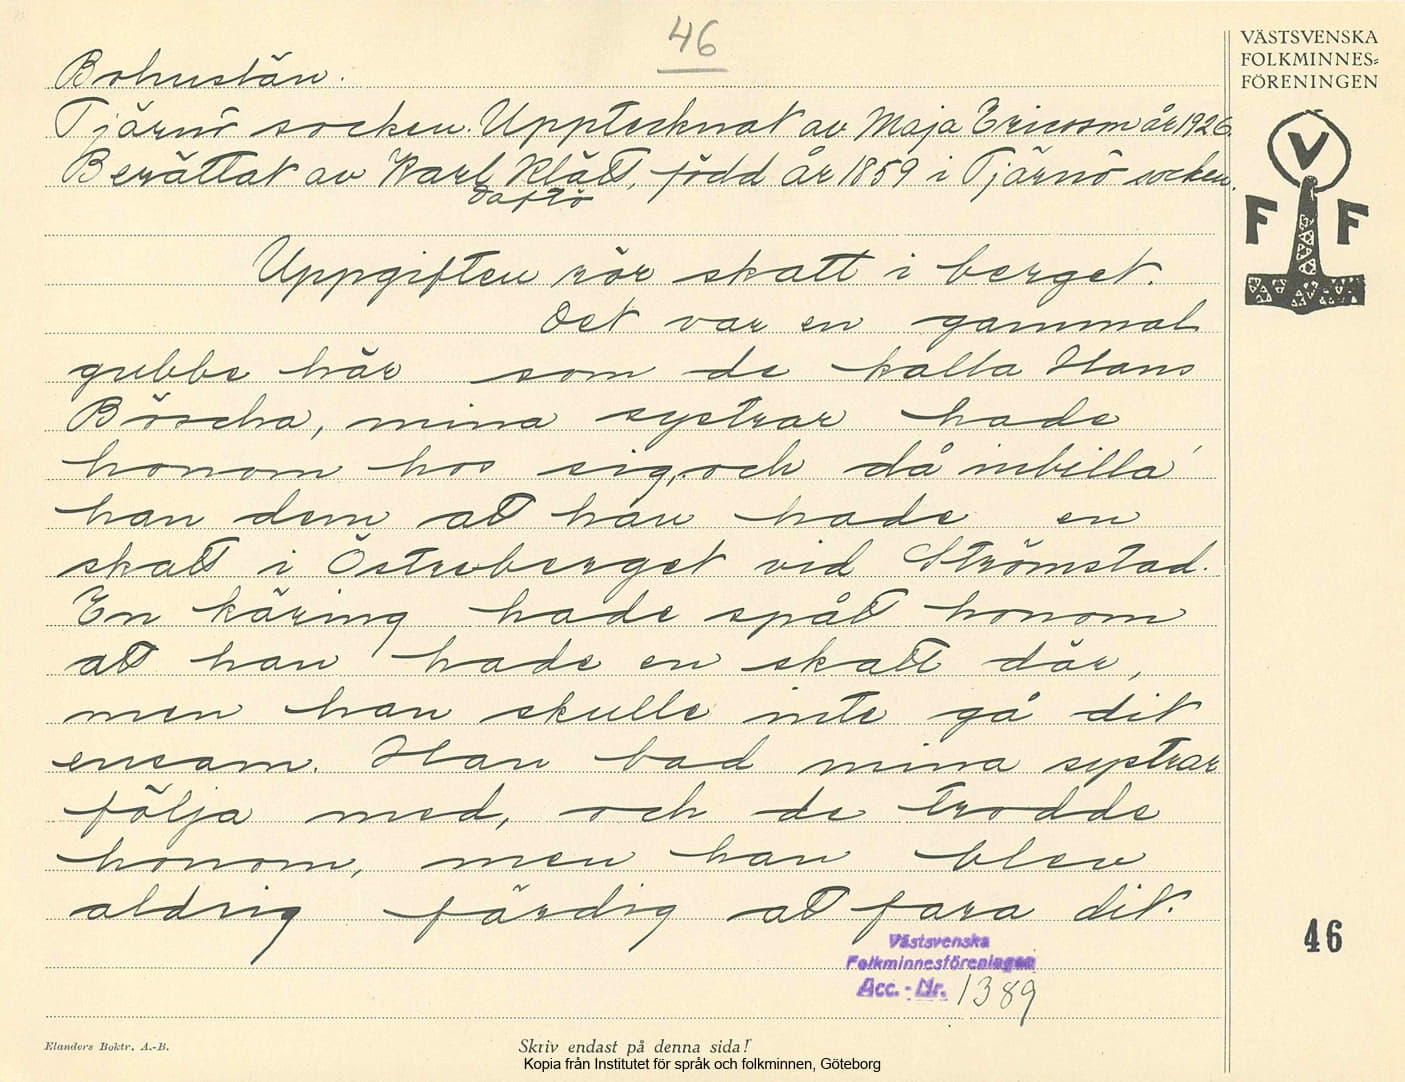 46
VÄSTSVENSKA
FOLKMINNES=
FÖRENINGEN
Bohuslän.
Tjärnö socken. Upptecknat av Maja Ericsson år 1926.
Berättat av Karl Klätt, född år 1859 i Tjärnö socken.
Daftö
V
F F
Uppgiften rör skatt i berget.
Det var en gammal
gubbe här som de kalla Hans
Böscha, mina systrar hade
honom hos sig, och då inbilla'
han dem att han hade en
skatt i Östreberget vid Strömstad.
En käring hade spått honom
att han hade en skatt där,
men han skulle inte gå dit
ensam. Han bad mina systrar
följa med, och de trodde
honom, men han blev
aldrig färdig att fara dit.
46
Västsvenska
Folkminnesföreningen
Acc. - Nr. 1389
Elanders Boktr. A.-B.
Skriv endast på denna sida!
Kopia från Institutet för språk och folkminnen, Göteborg